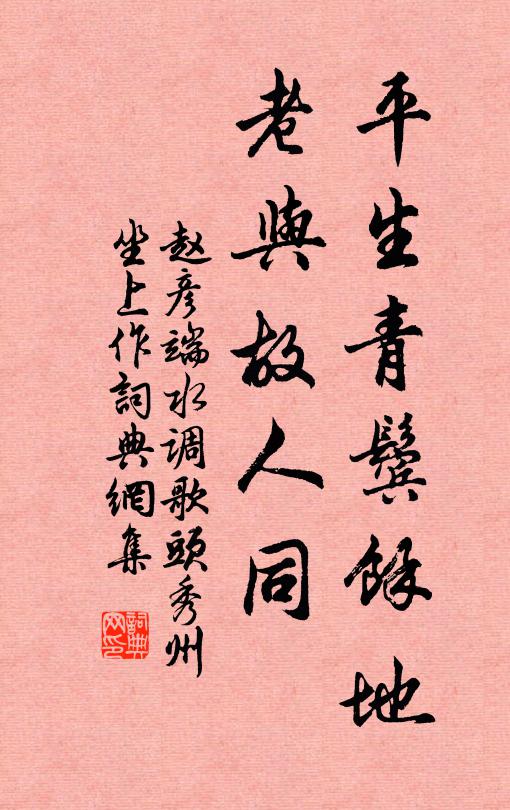 平生青鬓餘地
老與故人同
赵彦端水调歌頭秀州
坐上作詞典網集
詞典网印